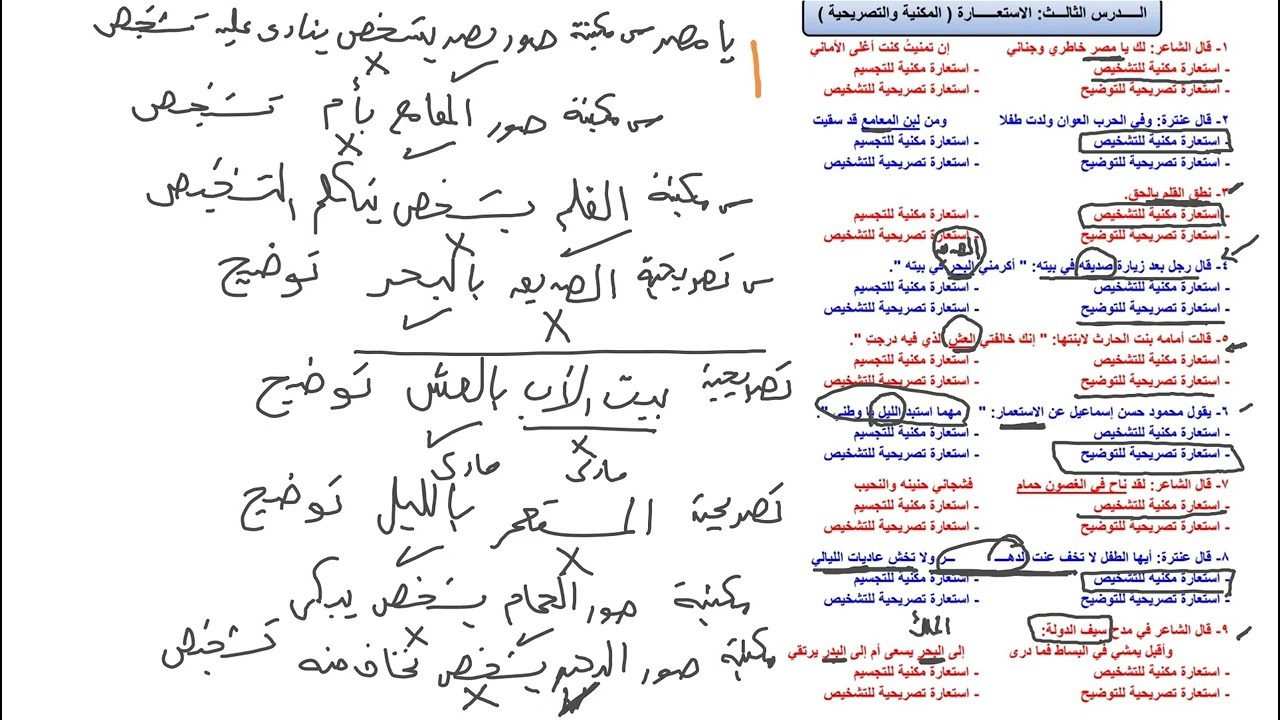 الـــدرس الثالـــث: الاستعـــــارة ( المكنية والتصريحية )
١- قال الشاعر: لك يا مصر خاطري وجناني إن تمنيتُ كنت أغلى الأماني
- استعارة مكنية للتشخيص - استعارة مكنية للتجسيم
- استعارة تصريحية للتوضيح - استعارة تصريحية للتشخيص
٢- قال عنترة: وفي الحرب العوان ولدت طفلا ومن لبن المعامع قد سقيت
- استعارة مكنية للتشخيص - استعارة مكنية للتجسيم
- استعارة تصريحية للتوضيح - استعارة تصريحية للتشخيص
٣- نطق القلم بالحق.
- استعارة مكنية للتشخيص - استعارة مكنية للتجسيم
- استعارة تصريحية للتوضيح - استعارة تصريحية للتشخيص
٤- قال رجل بعد زيارة صديقه في بيته: " أكرمني البحر في بيته ".
- استعارة مكنية للتشخيص - استعارة مكنية للتجسيم
- استعارة تصريحية للتوضيح - استعارة تصريحية للتشخيص
٥- قالت أمامه بنت الحارث لابنتها: " إنك خالفتي العش الذي فيه درجتِ ".
- استعارة مكنية للتشخيص - استعارة مكنية للتجسيم
- استعارة تصريحية للتوضيح - استعارة تصريحية للتشخيص
٦- يقول محمود حسن إسماعيل عن الاستعمار: " مهما استبد الليل يا وطني ".
- استعارة مكنية للتشخيص - استعارة مكنية للتجسيم
- استعارة تصريحية للتوضيح - استعارة تصريحية للتشخيص
٧- قال الشاعر: لقد ناح في الغصون حمام فشجاني حنينه والنحيب
- استعارة مكنية للتشخيص - استعارة مكنية للتجسيم
- استعارة تصريحية للتوضيح - استعارة تصريحية للتشخيص
٨- قال عنترة: أيها الطفل لا تخف عنت الدهـــر ولا تخش عاديات الليالي
- استعارة مكنية للتشخيص - استعارة مكنية للتجسيم
- استعارة تصريحية للتوضيح - استعارة تصريحية للتشخيص
٩- قال الشاعر في مدح سيف الدولة:
وأقبل يمشي في البساط فما درى إلى البحر يسعى أم إلى البدر يرتقي
- استعارة مكنية للتشخيص - استعارة مكنية للتجسيم
- استعارة تصريحية للتوضيح - استعارة تصريحية للتشخيص
يا مصر س مكنية صور مصر بشخص ينادى عليه تشخيص
س مكنية صور المعامع بأم تشخيص
س مكنية القلم بشخص يتكلم التشخيص
س تصريحية الصديق بالبحر توضيح
تصريحية بيت الأب بالعش توضيح
مادى مادى
تصريحية المستعمر بالليل توضيح
مكنية صور الحمام بشخص يبكى
مكنية صور الدهر بشخص نخاف منه تشخيص